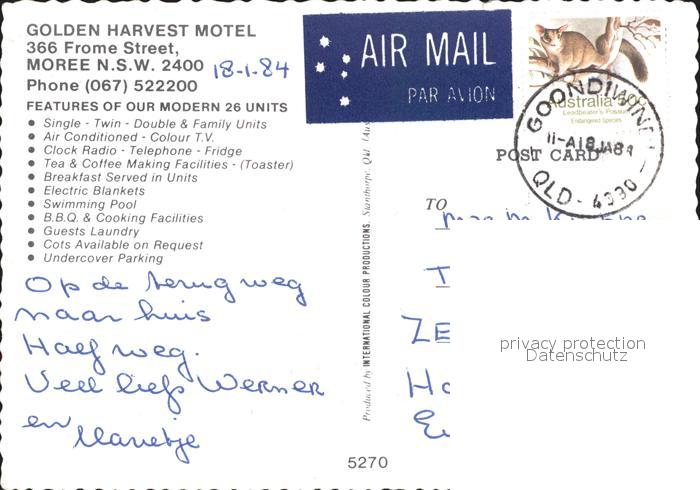 GOLDEN HARVEST MOTEL
366 Frome Street,
MOREE N.S.W. 2400
18-1-84
Phone (067) 522200
FEATURES OF OUR MODERN 26 UNITS
● Single - Twin - Double & Family Units
● Air Conditioned - Colour T.V.
● Clock Radio - Telephone - Fridge
● Tea & Coffee Making Facilities - (Toaster)
● Breakfast Served in Units
● Electric Blankets
● Swimming Pool
● B.B.Q. & Cooking Facilities
● Guests Laundry
● Cots Available on Request
● Undercover Parking
Op de terug weg
naar huis
Half weg.
Veel liefs Werner
en
Produced by INTERNATIONAL COLOUR PRODUCTIONS, Stanthorpe, Qld. (Aus
5270
AIR MAIL
PAR AVION
Australia
Leadbeater's Possum
Endangered Species
GOONDIWINDI
QLD - 4390
POST CARD
TO
T
ZE
Ho
privacy protection
Datenschutz